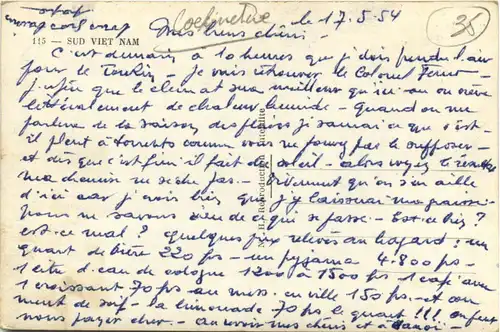 Cochinchine
le 17.5.54
35
Mes biens chéris -
115 - SUD VIET NAM
C'est demain à 10 heures que je dois prendre l'air
pour le Tonkin - je vais retrouver le Colonel
j'espère que le climat sera meilleur qu'ici - on crève
littéralement de chaleur humide - Quand on me
parlera de la saison des pluies je saurai ce que c'est -
il pleut à torrents comme vous ne pouvez pas le supposer -
et dès que c'est fini il fait du soleil - alors voyez le résultat
ma chemise ne sèche pas - Vivement qu'on s'en aille
d'ici car je crois bien que j'y laisserai ma
nous ne savons rien de ce qui se passe - Est-ce bien ?
est-ce mal ? quelques prix relevés au hasard : un
quart de bière 220 frs - un pyjama 4.800 frs -
1 litre d'eau de cologne 1200 à 1500 frs 1 café avec
1 croissant 70 frs au mess. en ville 150 frs - et on
meurt de soif - la limonade 70 frs le quart !!! on peut
nous payer cher - au revoir mes chéris et à